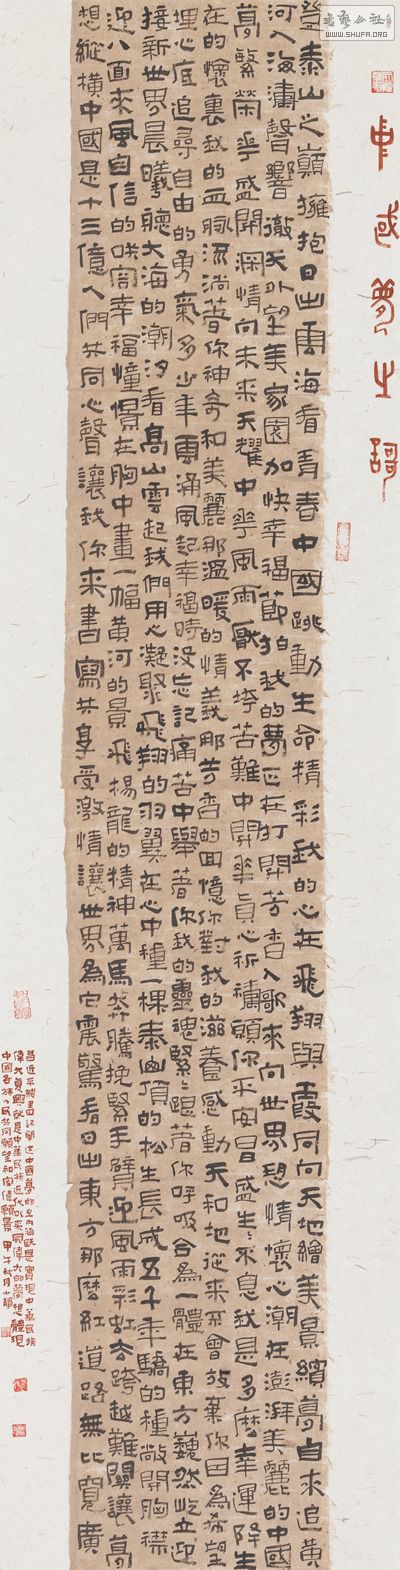 中国梦之歌
登泰山之巔擁抱日出雲海看青春中國跳動生命精彩我的心在飛翔與霞同向天地繪美景繽夢自來追黃
河入海濤聲響徹天外望美家園加快幸福節拍我的夢正在打開芳香入歌來向世界想情懷心潮在澎湃美麗的中國
夢繁榮華盛開深情向未來天耀中華風雨厭不垮苦難中開華真心祈禱願你平安昌盛生生不息我是多麼幸運降生
在的懷裏我的血脉流淌著你神奇和美麗那溫暖的情義那芳香的回憶你對我的滋養感動天和地從來不會放棄你因為希望
埋心底追尋自由的勇氣多少年雲涌風起幸福時没忘記痛苦中舉著你我的靈魂緊緊跟著你呼吸合為一體在東方巍然屹立迎
接新世界晨曦聽大海的潮汐看高山雲起我們用心凝聚飛翔的羽翼在心中種一棵泰山頂的松生長成五千年驕的種敞開胸襟
迎八面來風自信的笑容幸福憧憬在胸中畫一幅黃河的景飛揚龍的精神萬馬奔騰挽緊手臂迎風雨彩虹去跨越難關讓夢
想縱橫中國是十三億人們共同心聲讓我你來書寫共享受激情讓世界為它震驚看日出東方那麼紅道路無比寬廣
書藝公社
WWW.SHUFA.ORG